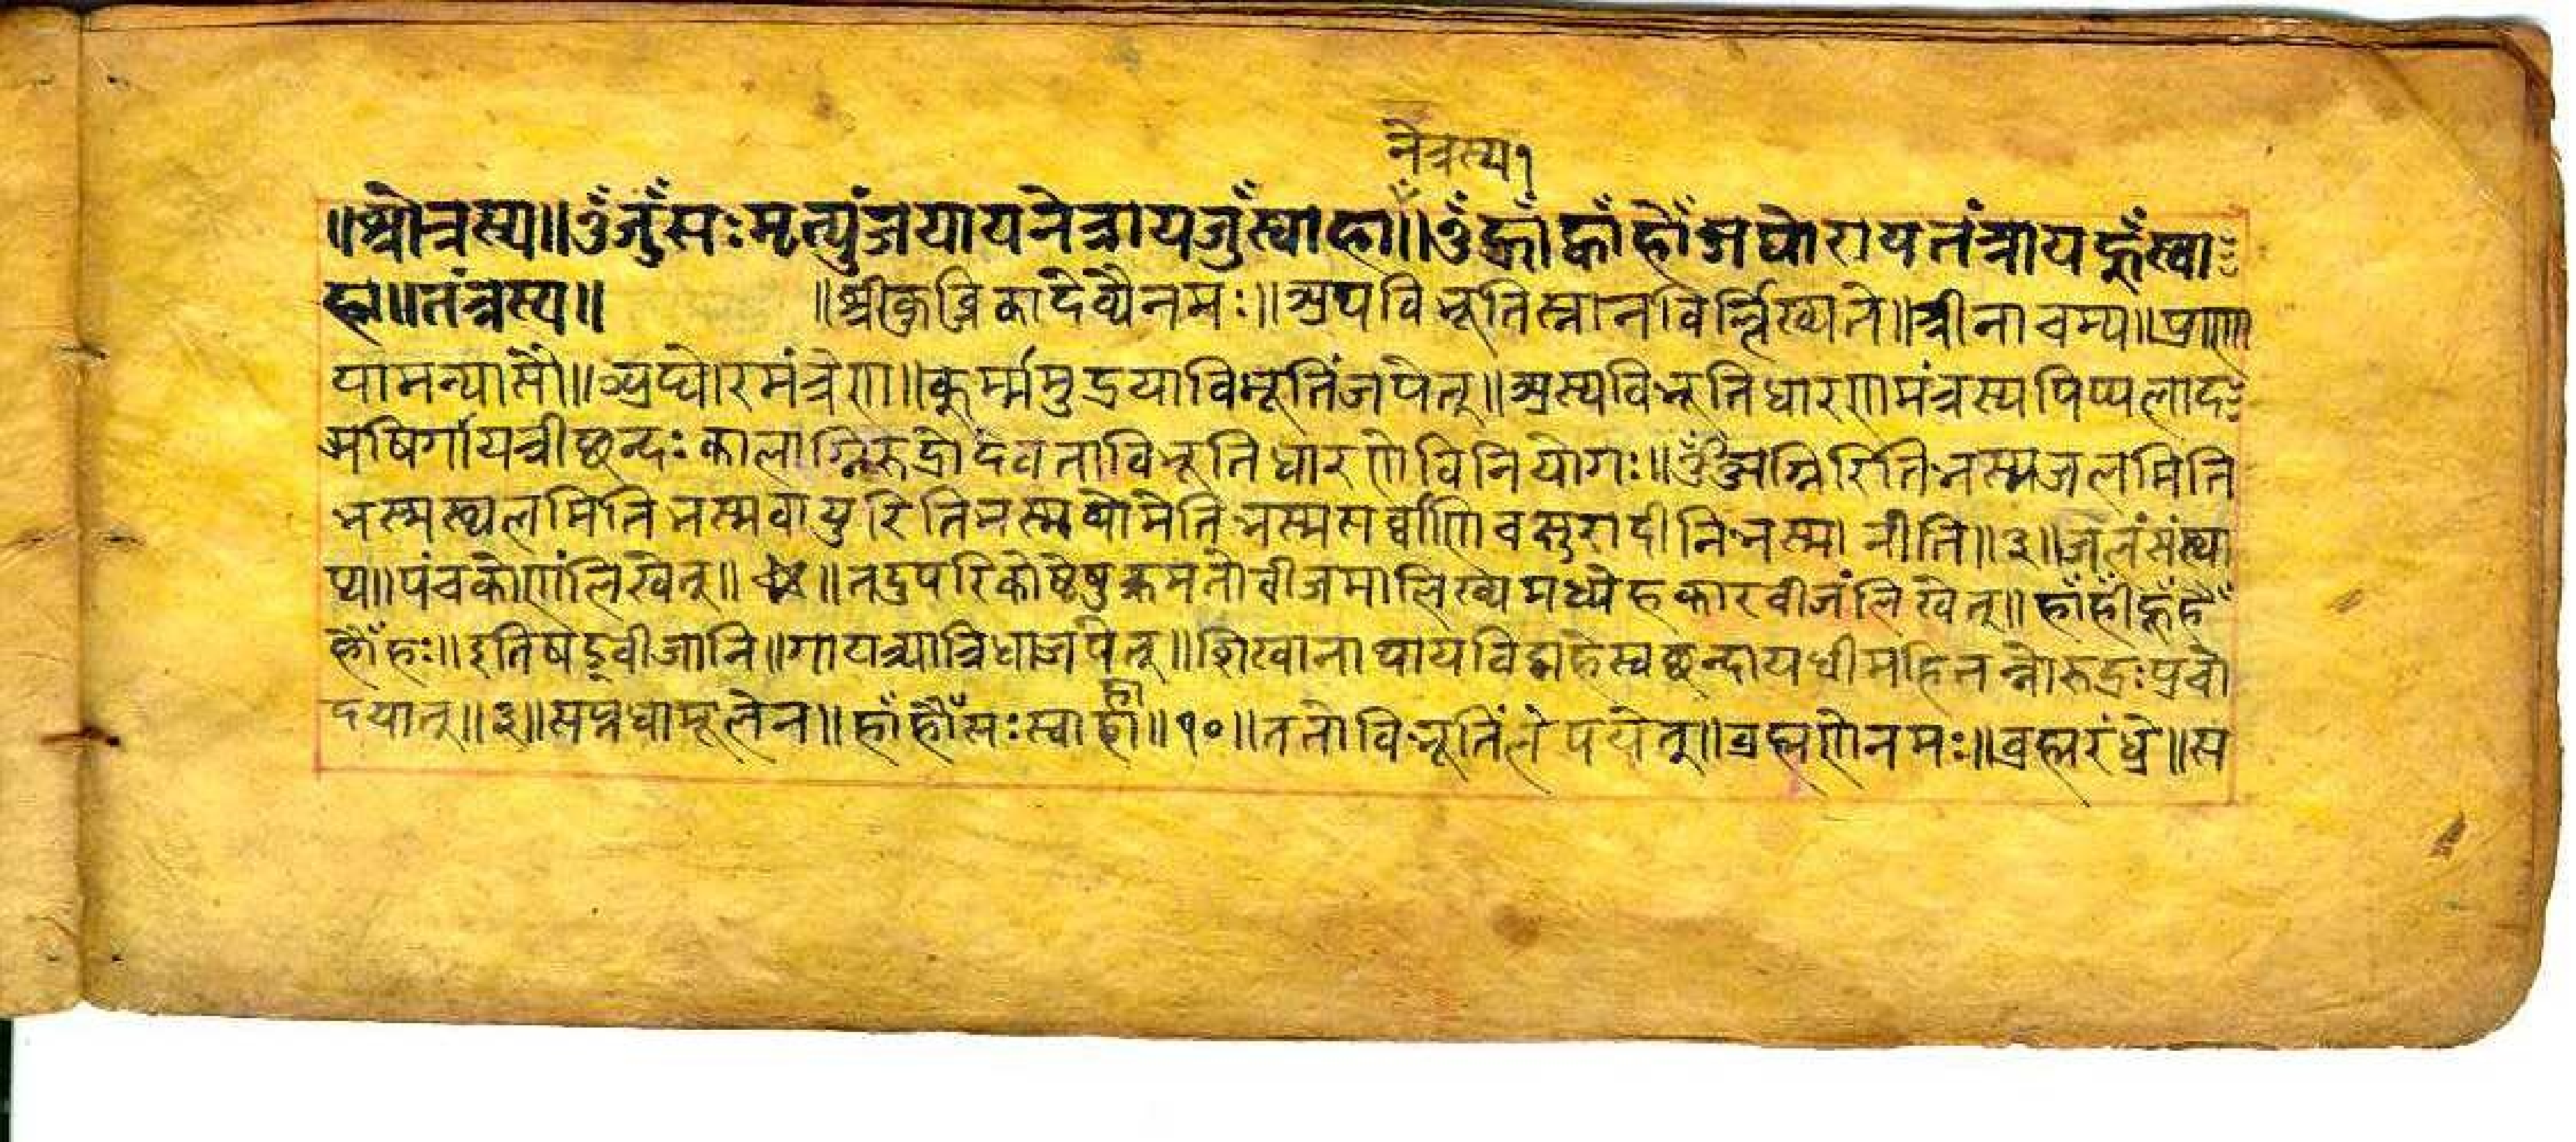 नेत्रस्य१
॥श्रोत्रस्य॥ॐ जुँसःमृत्युंजयायनेत्रायजुँस्वाहा॥ॐ ह्राँ ह्वाँ हौँ अघोरायतंत्रायह्रुँस्वा
हा॥तंत्रस्य॥ ॥श्रीकुब्जिकादेव्यैनमः॥अथविभूतिस्नानविर्ल्लिख्यते॥त्रीनाचम्य॥प्राणा
यामन्यासौ॥अघोरमंत्रेण॥कुर्म्ममुद्रयाविभूतिंजपेत्॥अस्यविभूतिधारणमंत्रस्यपिप्पलाद
ऋषिर्गायत्रीछन्दःकालाग्निरुद्रोदेवताविभूतिधारणेविनियोगः॥ॐअग्निरितिभस्मजलमिति
भस्मस्थलमितिभस्मवायुरितिभस्मव्योमेतिभस्मसर्व्वाणिचक्षुरादीनिभस्मानीति॥३॥जलंसंस्था
प्य॥पंचकोणंलिखेत्॥ ॥तदुपरिकोष्ठेषुक्रमतोवीजमालिख्यमध्येहकारवीजंलिखेत्॥ह्राँह्रीँह्रूँह्रैँ
ह्रौँह्रः॥इतिषड्वीजानि॥गायत्र्यात्रिधाजपेत्॥शिखानाथायविद्महेस्वछन्दायधीमहितन्नोरुद्रःप्रचो
दयात्॥३॥सप्तधामूलेन॥ह्राँह्रौँसःस्वाहा॥१०॥ततोविभूतिंलेपयेत्॥ब्रह्मणेनमः॥ब्रह्मरंध्रे॥स